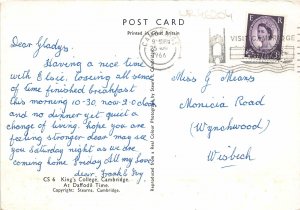 POST CARD
Printed in Great Britain
1966
VISIT
Dear Gladys.
Having a nice time
with Elsie. loosing all sense
of time finished breakfast
this morning 10-30, now 2.0 clock
and no dinner yet quiet a
change of living. Hope you are
feeling stronger dear may see
you Saturday night as we are
coming home Friday All my love
dear,
CS 6 King's College, Cambridge.
At Daffodil Time.
Copyright: Stearns, Cambridge.
Miss G Means
Monicia Road
(Wynchwood)
Wisbech